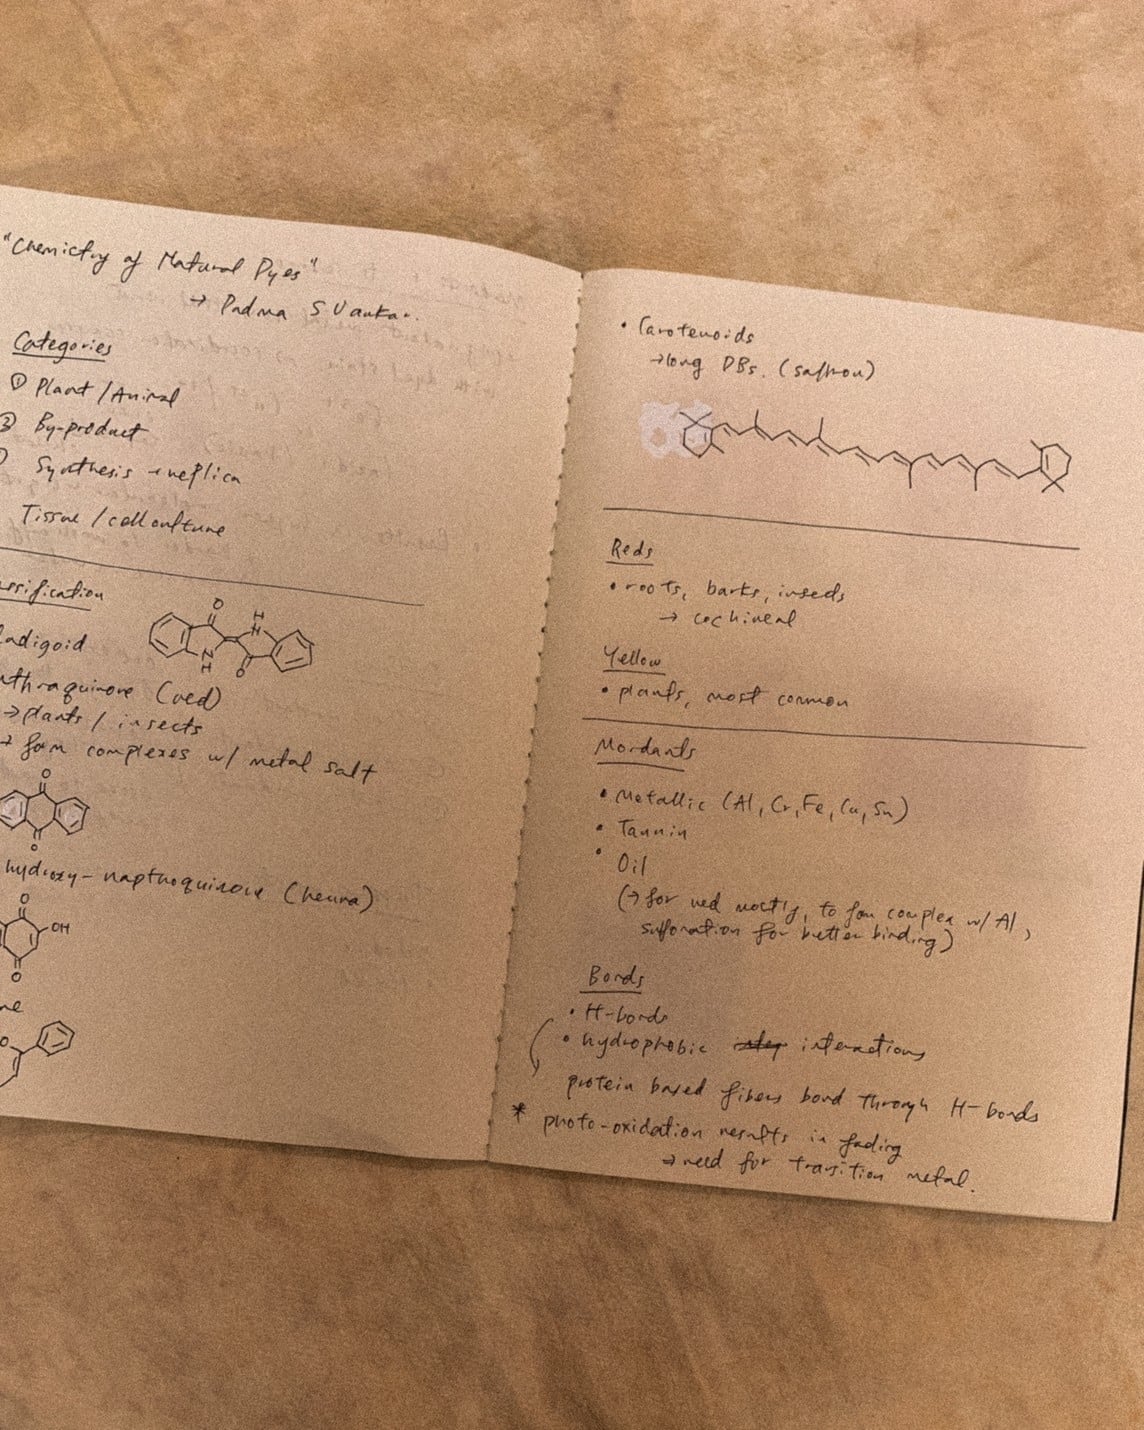 "Chemistry of Natural Dyes"
→ Padma S Vankar.
Categories
① Plant / Animal
② By-product
Synthesis → replica
Tissue / cell culture
ssification
ndigoid
O
H
N
N
H
O
nthraquinone (red)
→ plants / insects
→ form complexes w/ metal salt
O
O
hydroxy-napthoquinone (henna)
O
OH
O
ne
O
• Carotenoids
→ long DBs. (saffron)
Reds
• roots, barks, insects
→ cochineal
Yellow
• plants, most common
Mordants
• Metallic (Al, Cr, Fe, Cu, Sn)
• Tannin
• Oil
(→ for red mostly, to form complex w/ Al,
sulfonation for better binding)
Bonds
• H-bonds
• hydrophobic interactions
protein based fibers bond through H-bonds
* photo-oxidation results in fading
→ need for transition metal.